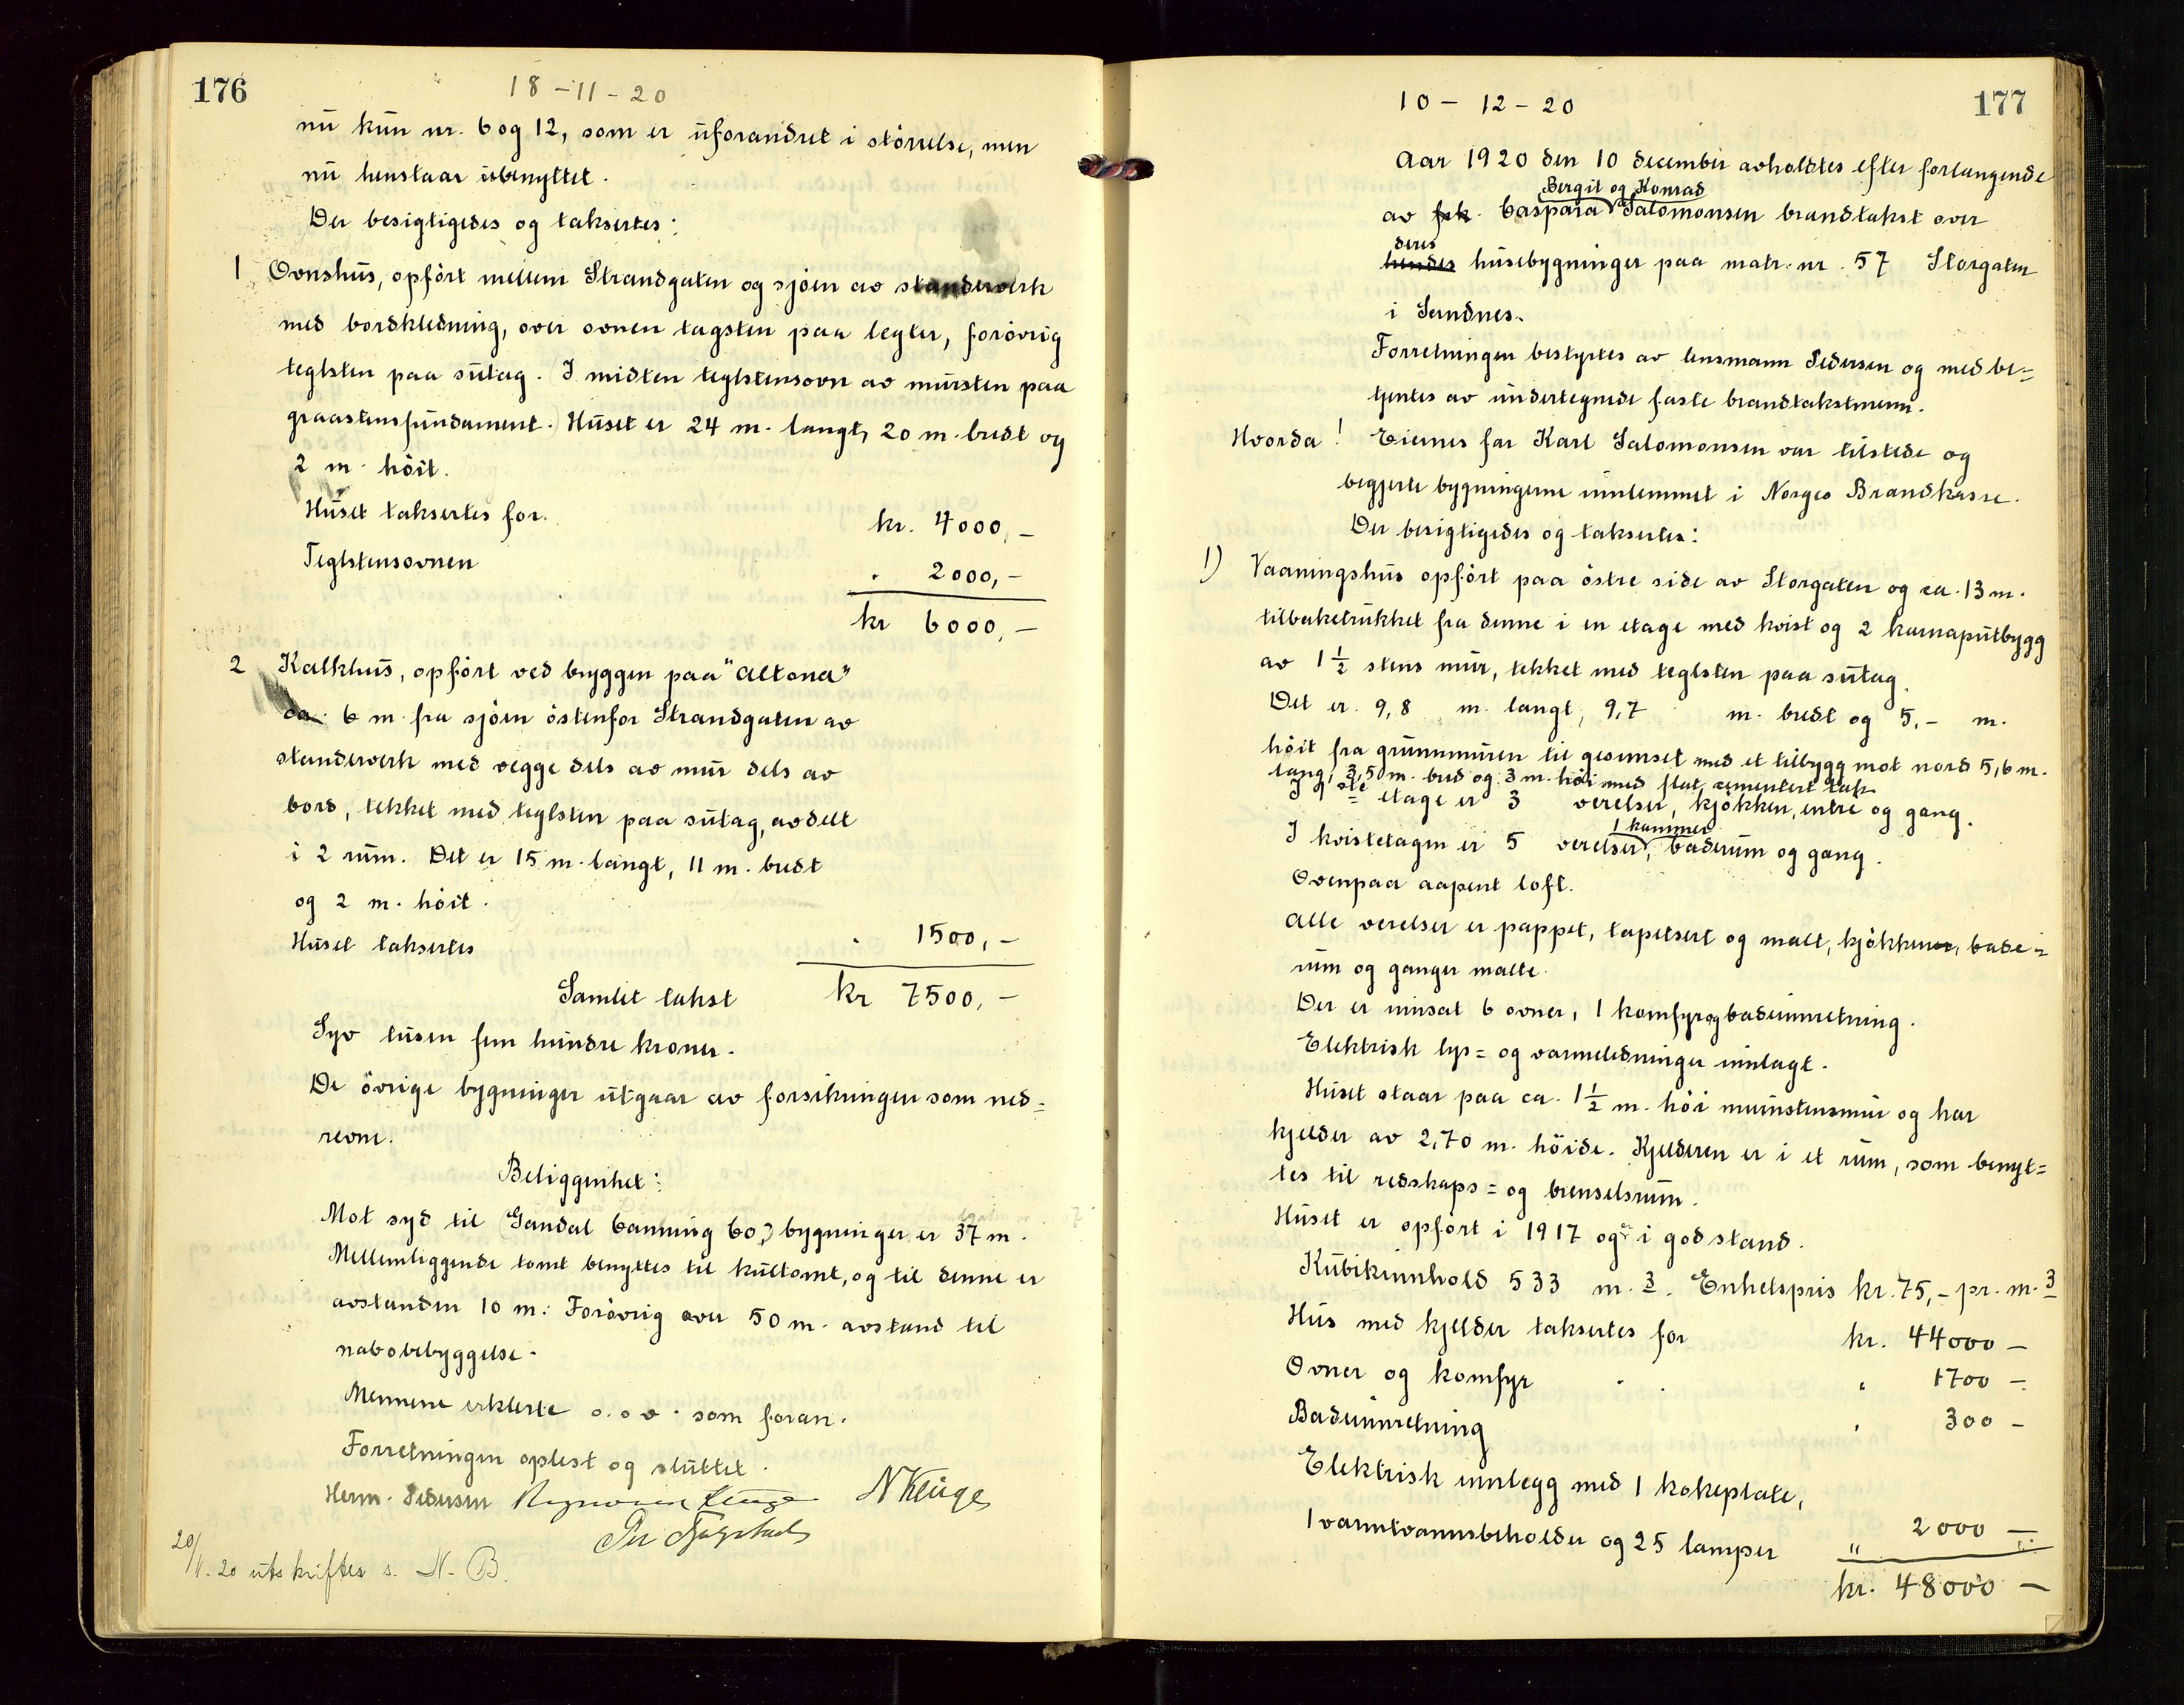 176
18-11-20
nu kun nr. 6 og 12, som er uforandret i störrelse, men
nu henstaar ubenyttet.
Der besigtigedes og taksertes:
1 Ovnshus, opfört mellem Strandgaten og sjöen av standerverk
med bordkledning, over ovnen tagsten paa legter, forövrig
teglsten paa sutag. (I midten teglstensovn av mursten paa
graastensfundament.) Huset er 24 m. langt, 20 m. bredt og
2 m. höit.
Huset taksertes for. kr. 4000,-
Teglstensovnen " 2000,-
kr 6000,-
2 Kalkhus, opfört ved bryggen paa "Altona"
ca. 6 m. fra sjöen östenfor Strandgaten av
standerverk med vegge dels av mur dels av
bord, tekket med teglsten paa sutag, avdelt
i 2 rum. Det er 15 m. langt, 11 m. bredt
og 2 m. höit.
Huset taksertes " 1500,-
Samlet takst kr 7500,-
Syv tusen fem hundre kroner.
De övrige bygninger utgaar av forsikringen som ned=
revne.
Beliggenhet:
Mot syd til (Gandal Canning Co.) bygninger er 37 m.
Mellemliggende tomt benyttes til kultomt, og til denne er
avstanden 10 m. Forövrig over 50 m. avstand til
nabobebyggelse.
Mennene erklerte o.s.v. som foran.
Forretningen oplest og sluttet.
Herm. Pedersen N Kluge
Per
20/11.20 utskriftes s. N. B.
177
10-12-20
Aar 1920 den 10 december avholdtes efter forlangende
Bergit og Konrad
av frk. Caspara Salomonsen brandtakst over
deres
hendes husebygninger paa matr. nr. 57 Storgaten
i Sandnes.
Forretningen bestyrtes av lensmann Pedersen og med be=
tjentes av undertegnede faste brandtakstmenn.
Hvorda! Eiernes far Karl Salomonsen var tilstede og
begjerte bygningerne innlemmet i Norges Brandkasse.
Der besigtigedes og taksertes:
1) Vaaningshus opfört paa östre side av Storgaten og ca. 13 m.
tilbaketrukket fra denne i en etage med kvist og 2 karnaputbygg
av 1 1/2 stens mur, tekket med teglsten paa sutag.
Det er 9,8 m. langt, 9,7 m. bredt og 5,- m.
höit fra grunnmuren til gesimset med et tilbygg mot nord 5,6 m.
lang, 3,50 m. bred og 3 m. höi med flat, cementert tak
I 1ste etage er 3 verelser, kjökken, entre og gang.
1 kammer
I kvistetagen er 5 verelser, baderum og gang.
Ovenpaa aapent loft.
Alle verelser er pappet, tapetsert og malt, kjökken, bade=
rum og ganger malte.
Der er innsat 6 ovner, 1 komfyr og badeinnretning.
Elektrisk lys= og varmeledninger innlagt.
Huset staar paa ca. 1 1/2 m. höi murstensmur og har
kjelder av 2,70 m. höide. Kjelderen er i et rum, som benyt=
tes til redskaps= og brenselsrum.
Huset er opfört i 1917 og er i god stand.
Kubikinnhold 533 m.3. Enhetspris kr. 75,- pr. m.3
Hus med kjelder taksertes for kr. 44000 -
Ovner og komfyr " " " 1700 -
Badeinnretning " 300 -
Elektrisk innlegg med 1 kokeplate,
1 varmtvannsbeholder og 25 lamper " 2000 -
kr. 48000 -